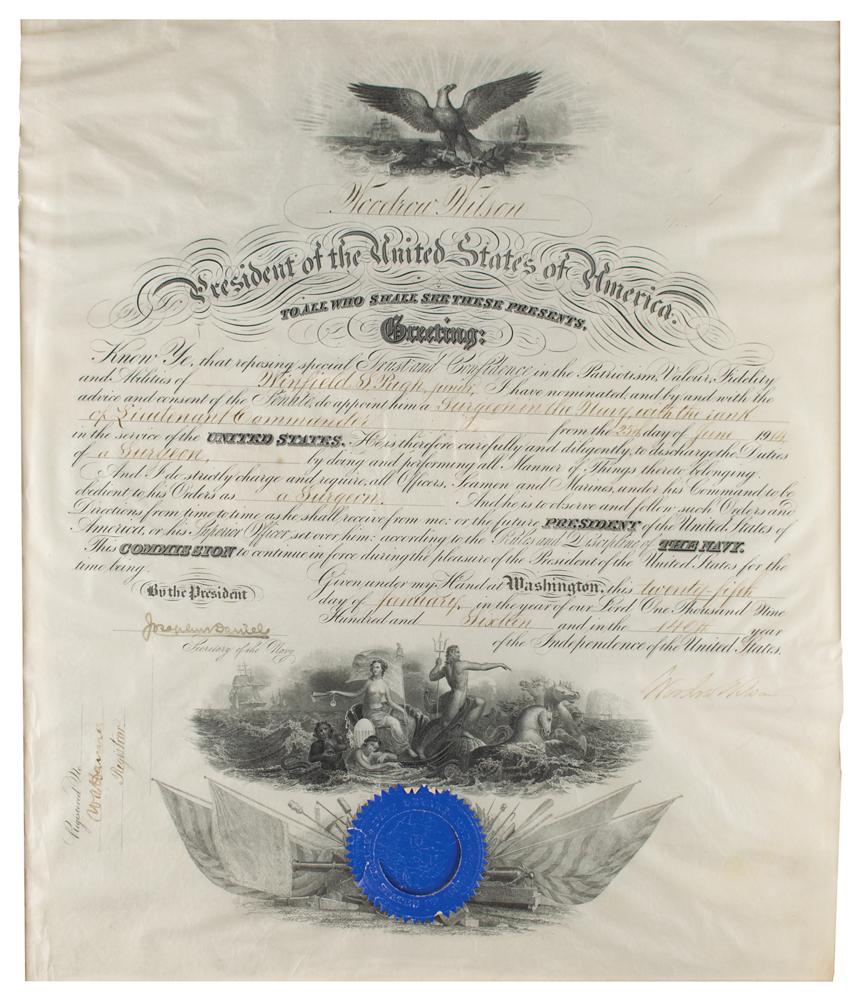 Woodrow Wilson
President of the United States of America.
TO ALL WHO SHALL SEE THESE PRESENTS,
Greeting:
Know Ye, that reposing special Trust and Confidence in the Patriotism, Valour, Fidelity
and Abilities of Winfield S. Pugh, junr, I have nominated, and by and with the
advice and consent of the Senate, do appoint him a Surgeon in the Navy, with the rank
of Lieutenant Commander from the 23rd day of June 19
in the service of the UNITED STATES. He is therefore carefully and diligently, to discharge the Duties
of a Surgeon, by doing and performing all Manner of Things thereto belonging.
And I do strictly charge and require, all Officers, Seamen and Marines, under his Command to be
obedient to his Orders as a Surgeon. And he is to observe and follow such Orders and
Directions from time to time as he shall receive from me: or the future PRESIDENT of the United States of
America, or his Superior Officer set over him: according to the Rules and Discipline of THE NAVY.
This COMMISSION to continue in force during the pleasure of the President of the United States for the
time being.
Given under my Hand at Washington, this twenty-fifth
By the President
day of January, in the year of our Lord One Thousand Nine
Hundred and Sixteen and in the 140th year
Josephus Daniels
of the Independence of the United States.
Secretary of the Navy.
Woodrow Wilson
Registered No
Register